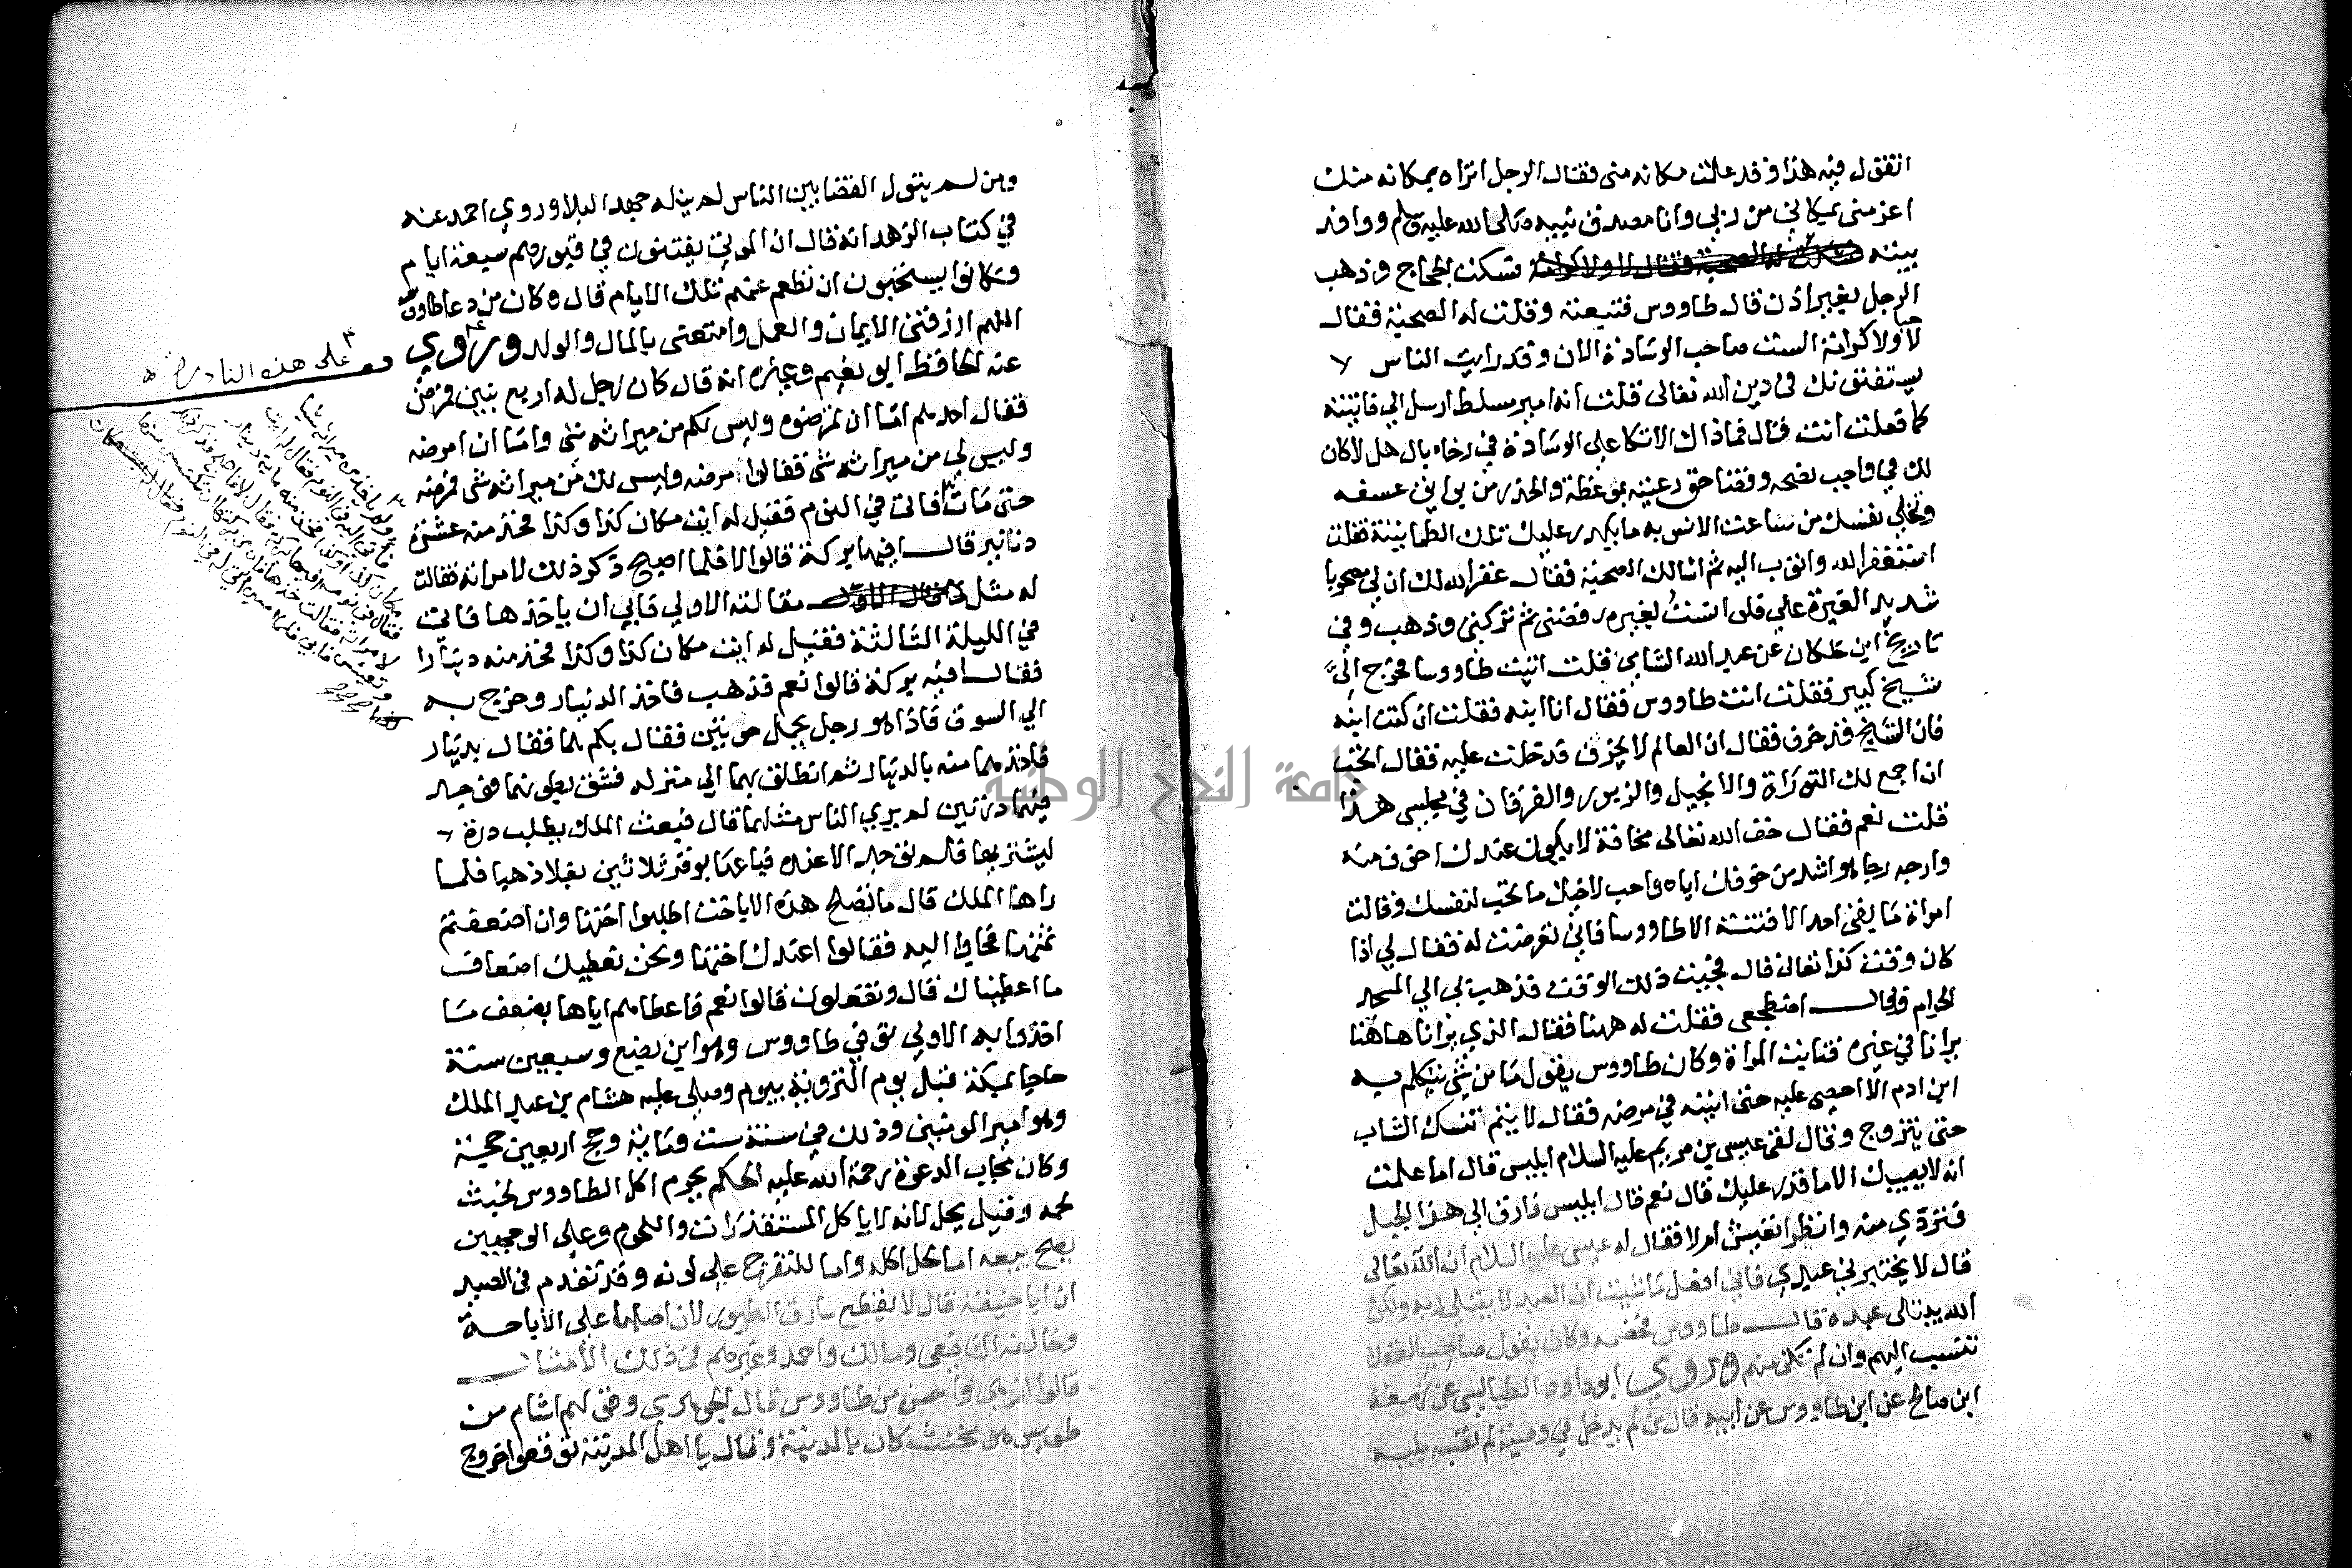 اتقول فيه هذا وقد علمت مكانه منى فقال الرجل اتراه بمكانه منك
اعز منى بمكاني من ربي وانا مصدق نبيه صلى الله عليه وسلم ووافد
بيته فسكت الحجاج وذهب
الرجل بغير اذن قال طاووس فتبعته وقلت له الصحبة فقال
لا ولا كرامة الست صاحب الوسادة الان وقد رايت الناس
يستفتونك في دين الله تعالى قلت انه امير مسلط ارسل الي فاتيته
كما فعلت انت قال فماذاك الاتكا على الوسادة في رخاء بال هل لا كان
لك في واجب نصحه وقضا حق رعيته بموعظة والحذر من بوايق عسفه
وتخلي نفسك من ساعت الانس به ما يكدر عليك تلك الطمانينة فقلت
استغفر الله واتوب اليه ثم اسالك الصحبة فقال غفر الله لك ان لي مصحوبا
شديد الغيرة علي فلو انست لغيره رفضني ثم تركني وذهب وفي
تاريخ ابن خلكان عن عبد الله الشامي قلت اتيت طاووسا فخرج الي
شيخ كبير فقلت انت طاووس فقال انا ابنه فقلت ان كنت ابنه
فان الشيخ قد خرف فقال ان العالم لا يخرف قد خلت عليه فقال اتحب
ان اجمع لك التوراة والانجيل والزبور والفرقان في مجلسي هذا
قلت نعم فقال خف الله تعالى مخافة لا يكون عندك اخوف منه
وارجه رجا هو اشد من خوفك اياه واحب لاخيك ما تحب لنفسك وقالت
امراة ما بقي احد الا فتنته الا طاووسا فاني تعرضت له فقال لي اذا
كان وقت كذا تعالى قال فجيت ذلك الوقت فذهب بي الي المسجد
الحرام وقال اضطجعي فقلت له ههنا فقال الذي يرانا هاهنا
يرانا في غيره فتابت المراة وكان طاووس يقول ما من شي يتكلم به
ابن ادم الا احصى عليه حتى انينه في مرضه فقال لا يتم تنسك الشاب
حتى يتزوج وقال لقى عيسى بن مريم عليه السلام ابليس قال اما علمت
انه لا يصيبك الا ما قدر عليك قال نعم قال ابليس فارق الي هذا الجبل
فتردي منه وانظر اتعيش ام لا فقال له عيسى عليه السلام ان الله تعالى
قال لا يختبرني عبدي فاني افعل ما شيت ان العبد لا يبتلي ربه ولكن
الله يبتلى عبده قال طاووس فخصمه وكان يقول صاحب العقلا
تنسب اليهم وان لم تكن منهم وروي ابو داود الطيالسي عن زمعة
ابن صالح عن ابن طاووس عن ابيه قال من لم يدخل في وصية لم تصبه بلية
ومن لم يتول القضا بين الناس لم ينله جهد البلا وروي احمد عنه
في كتاب الزهد انه قال ان الموتي يفتنون في قبورهم سبعة ايام
وكانوا يستحبون ان نطعم عنهم تلك الايام قال وكان من دعا طاووس
اللهم ارزقني الايمان والعمل وامتعني بالمال والولد وروي
عنه الحافظ ابو نعيم وغيره انه قال كان رجل له اربع بنين فمرض
فقال احدهم اما ان تمرضوه وليس لكم من ميراثه شي واما ان امرضه
وليس لي من ميراثه شي فقالوا مرضه وليس لك من ميراثه شي فمرضه
حتى مات فاتى في النوم فقيل له ايت مكان كذا وكذا فخذ منه عشرة
دنانير قال افيها بركة قالوا لا فلما اصبح ذكر ذلك لامراته فقالت
له مثل مقالته الاولي فابي ان ياخذها فاتي
في الليلة الثالثة فقيل له ايت مكان كذا وكذا فخذ منه دينارا
فقال افيه بركة قالوا نعم فذهب فاخذ الدينار وخرج به
الي السوق فاذا هو رجل يحمل حوتين فقال بكم هما فقال بدينار
فاخذهما منه بالدينار ثم انطلق بهما الي منزله فشق بطونهما فوجد
فيهما درتين لم يري الناس مثلهما قال فبعث الملك يطلب درة
ليشتريها فلم توجد الا عنده فباعها بوقر ثلاثين بغلا ذهبا فلما
راها الملك قال ما تصلح هذه الا باخت اطلبوا اختها وان اضعفتم
ثمنها فجاوا اليه فقالوا اعندك اختها ونحن نعطيك اضعاف
ما اعطيناك قال وتفعلون قالوا نعم فاعطاهم اياها بضعف ما
اخذوا به الاولي توفي طاووس وهو ابن بضع وسبعين سنة
حاجا بمكة قبل يوم التروية بيوم وصلى عليه هشام بن عبد الملك
وهو امير المومنين وذلك في سنة ست وماية وحج اربعين حجة
وكان مجاب الدعوة رحمة الله عليه الحكم يحرم اكل الطاووس لخبث
لحمه وقيل يحل لانه لا ياكل المستقذرات واللحوم وعلى الوجهين
يصح بيعه اما لحل اكله واما للتفرج على لونه وقد تقدم في الصيد
ان ابا حنيفة قال لا يقطع سارق الطيور لان اصلها على الاباحة
وخالفه الشافعي ومالك واحمد وغيرهم في ذلك الامثال
قالوا ازهي واحسن من طاووس قال الجوهري وقولهم اشام من
طويس هو مخنث كان بالمدينة وقال يا اهل المدينة توقعوا خروج
على هذه النادرة
جامعة النجاح الوطنية